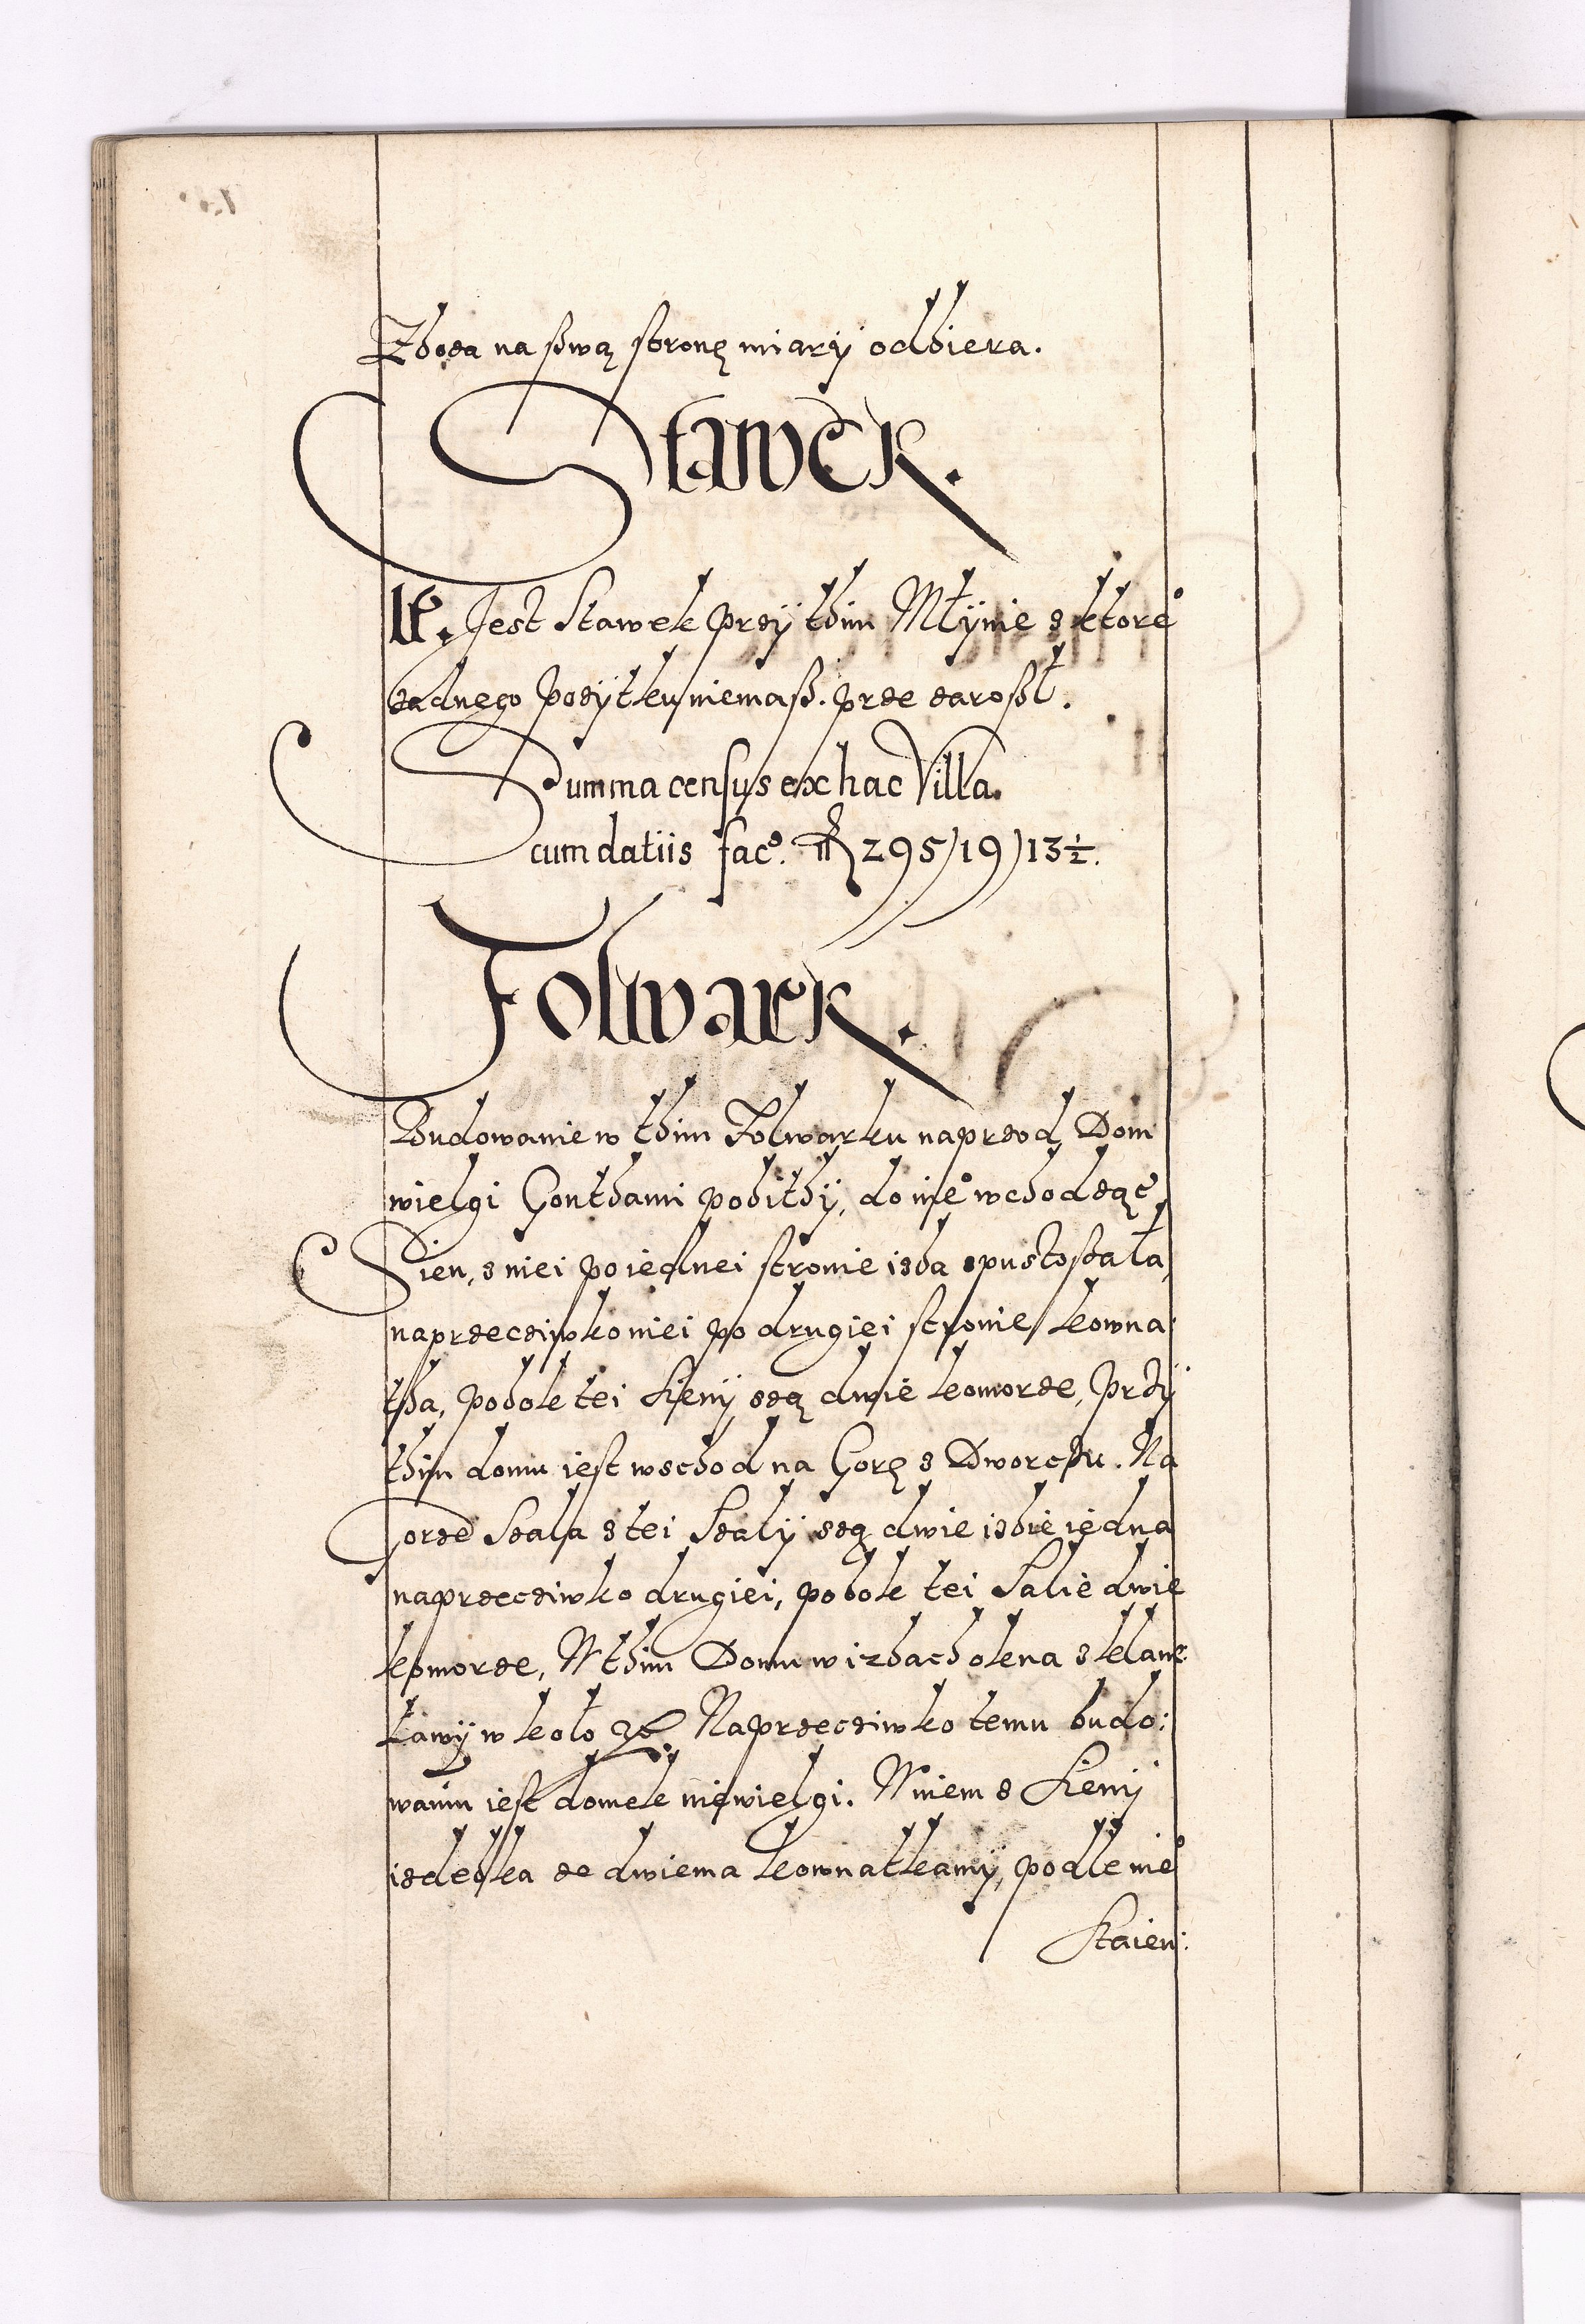 Zboża na sswą stronę miary odbiera.
Stawek.
It. Jest Stawek przy thim Młynie s ktore°
żadnego pożytku niemasz. prze zarosł.
Summa census ex hac Villa.
cum datiis fac. 295/19/13½.
Folwark.
Budowanie w thim Folwarku naprzod Dom
wielgi Gonthami pobithy, do nie° wchodząc
Sien, s niei po iednei stronie izba spustoszała,
naprzeciwko niei po drugiei stronie kowna:
tha, pobok tei Sieny są dwie komorze, przy
thim domu iest wschod na Gorę s Dworczu. Na
Gorze Szala s tei Szaly są dwie izbie iedna
naprzeciwko drugiei, pobok tei Salie dwie
komorze, W thim Domu w izbach okna sklane
ławy w koło etc. Naprzeciwko temu budo:
waniu iest domek niewielgi. W niem s Sieny
izdebka ze dwiema kownatkamy, podle nie°
Staien: